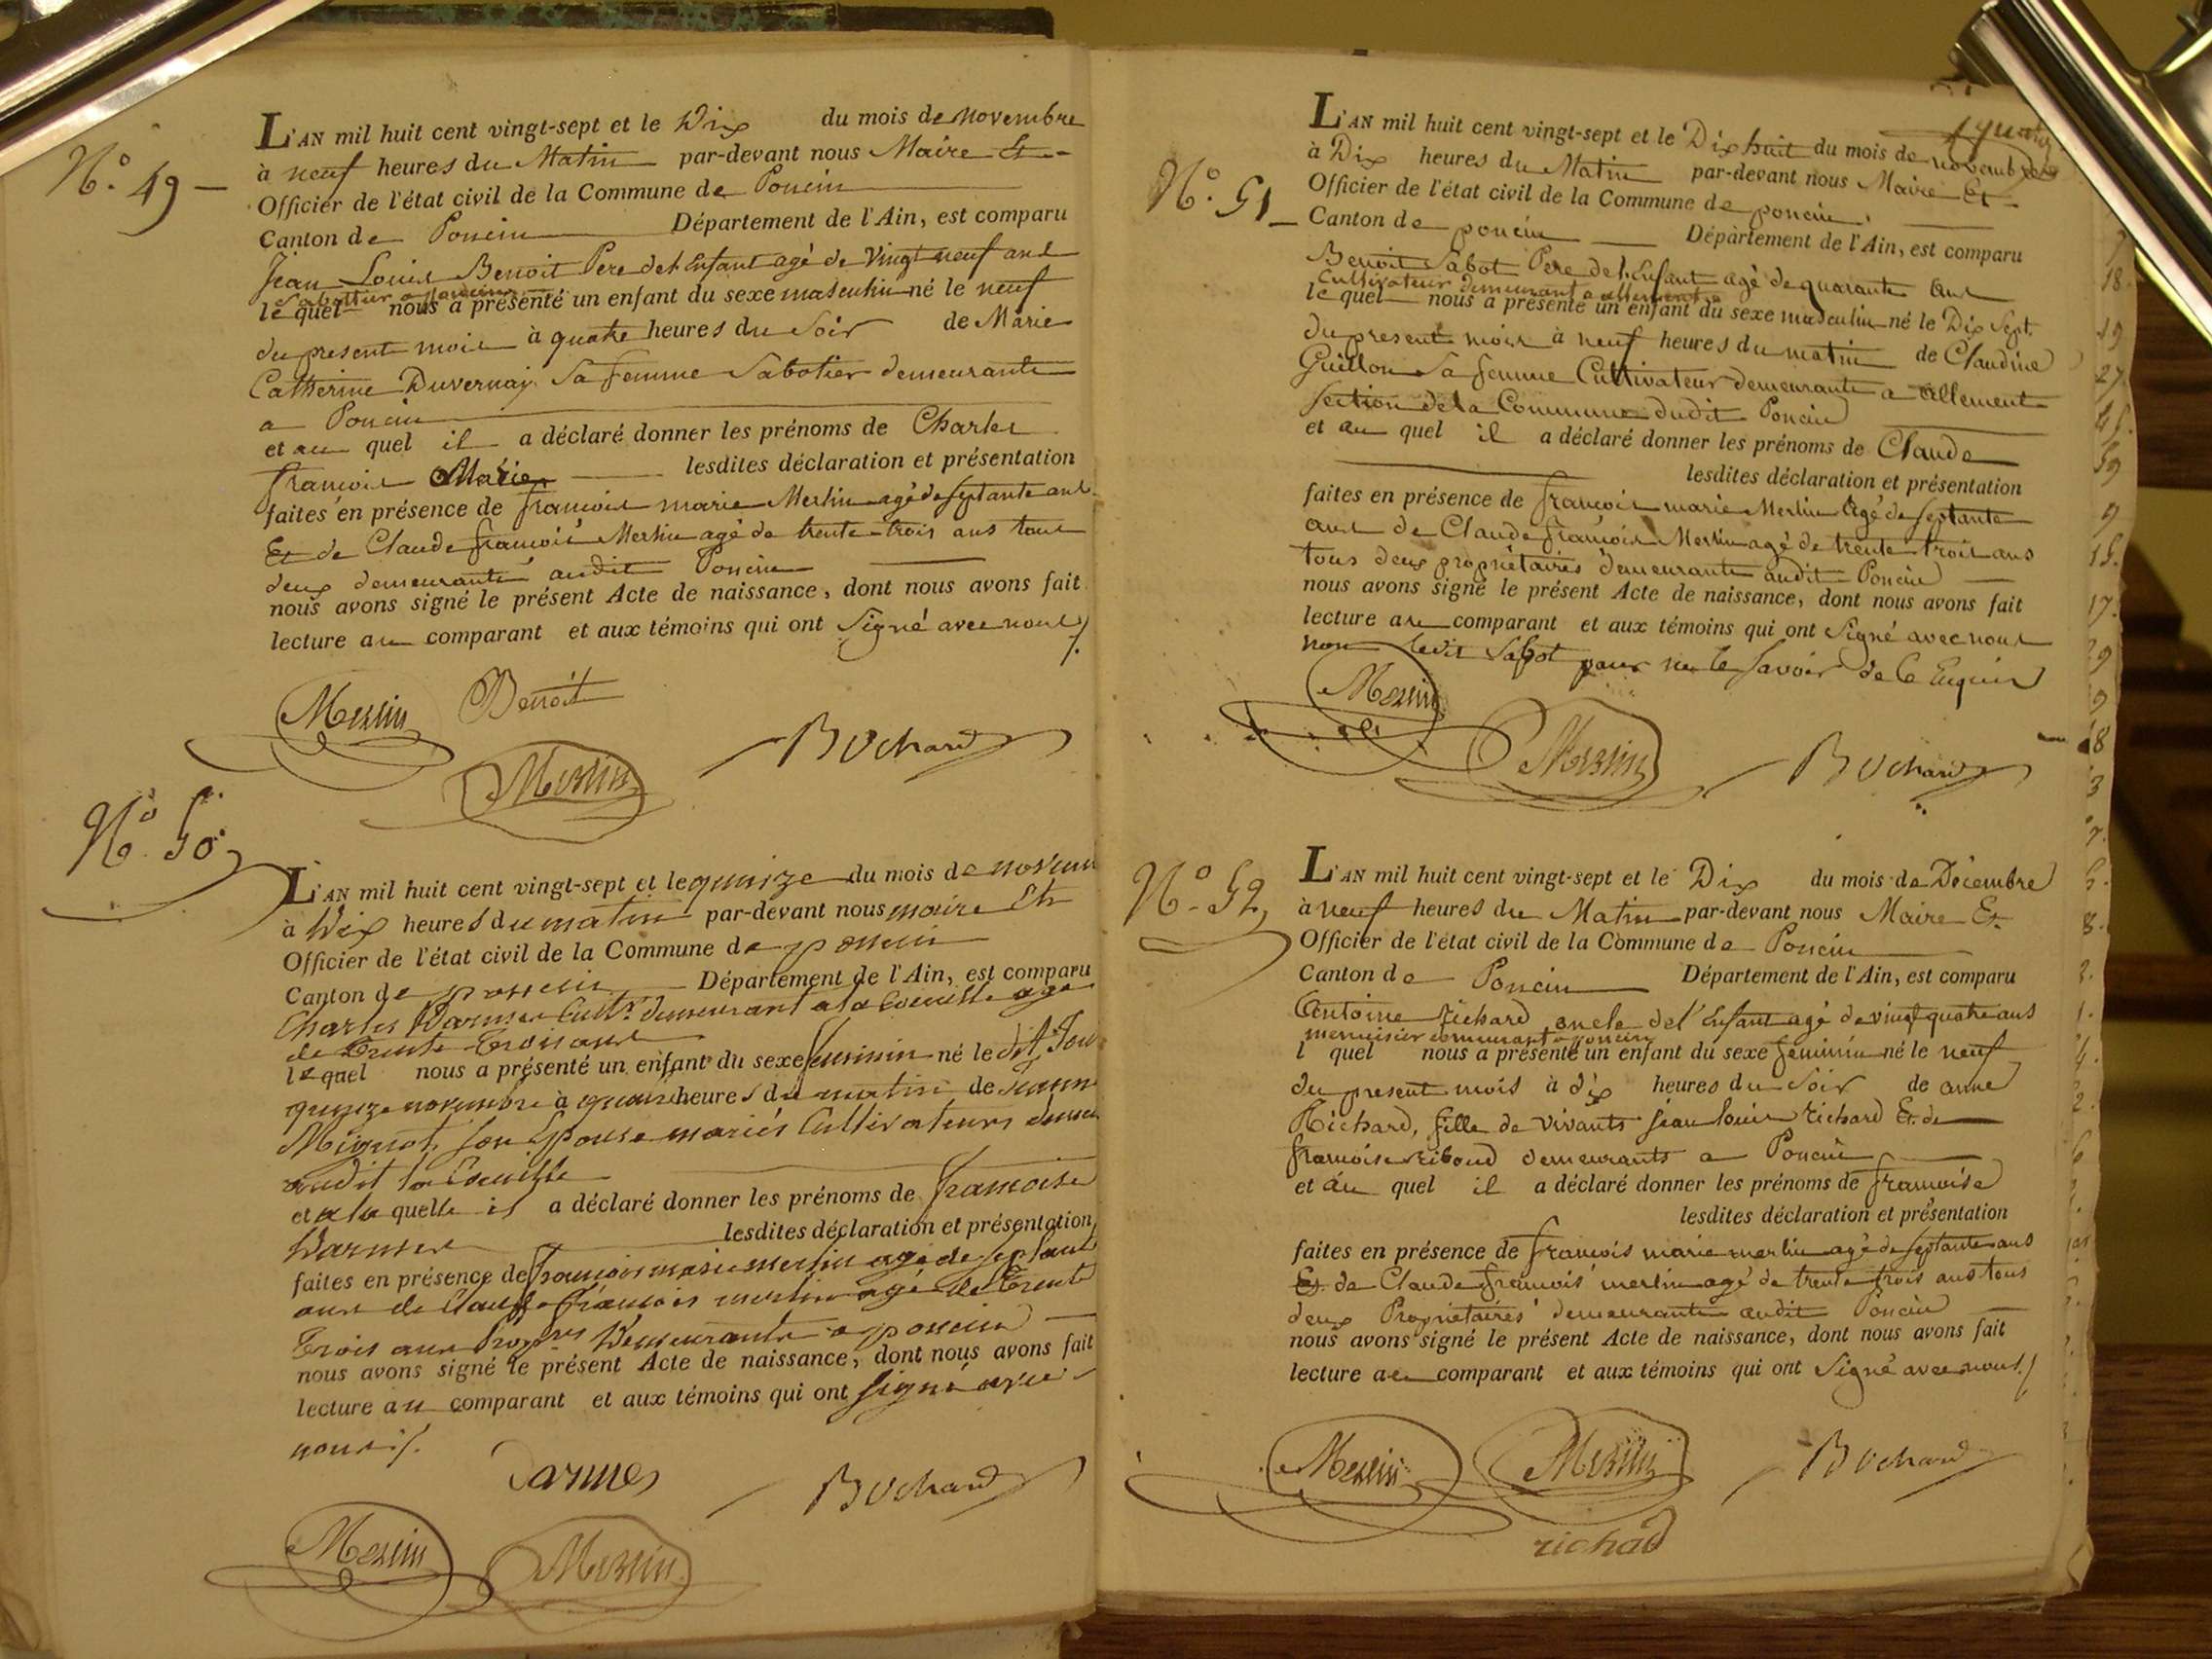 N.° 49
L'AN mil huit cent vingt-sept et le Dix du mois de novembre
à neuf heures du Matin par-devant nous Maire Et
Officier de l'état civil de la Commune de Poncin
Canton de Poncin Département de l'Ain, est comparu
Jean Louis Benoit Pere del Enfant agé de vingt neuf ans
Sabottier a poncin
le quel nous a présenté un enfant du sexe masculin né le neuf
du present mois à quatre heures du Soir de Marie
Catherine Duvernay Sa femme Sabotier demeurants
a Poncin
et au quel il a déclaré donner les prénoms de Charles
francois Marie lesdites déclaration et présentation
faites en présence de francois marie Merlin agé de septante ans
Et de Claude francois Merlin agé de trente-trois ans tous
deux demeurants audit Poncin
nous avons signé le présent Acte de naissance, dont nous avons fait
lecture au comparant et aux témoins qui ont Signé avec nous
Merlin Benoit
Merlin Bochard
N.° 50
L'AN mil huit cent vingt-sept et le quinze du mois de
à Dix heures du matin par-devant nous maire Et
Officier de l'état civil de la Commune de poncin
Canton de poncin Département de l'Ain, est comparu
Charles Darmes Cult.r demeurant a la agé
de Trente Trois ans
le quel nous a présenté un enfant du sexe feminin né le dit Jour
quinze novembre à heures du matin de
Mignot son Epouse mariés Cultivateurs
audit la
et a la quelle il a déclaré donner les prénoms de francoise
Darmes lesdites déclaration et présentation
faites en présence de francois marie merlin agé de septante
ans de Claude francois merlin agé de Trente
Trois ans Demeurants a poncin
nous avons signé le présent Acte de naissance, dont nous avons fait
lecture au comparant et aux témoins qui ont signé avec
nous
Darmes Bochard
Merlin Merlin
N.° 51
L'AN mil huit cent vingt-sept et le Dix huit du mois de novembre
à Dix heures du Matin par-devant nous Maire Et
Officier de l'état civil de la Commune de poncin
Canton de poncin Département de l'Ain, est comparu
Benoit Sabot Pere del Enfant agé de quarante ans
Cultivateur demeurant a allement
le quel nous a présenté un enfant du sexe masculin né le Dix Sept
du present mois à neuf heures du matin de Claudine
Guillon Sa femme Cultivateur demeurants a allement
section de la Commune dudit Poncin
et au quel il a déclaré donner les prénoms de Claude
lesdites déclaration et présentation
faites en présence de francois marie Merlin Agé de septante
ans de Claude francois Merlin agé de trente trois ans
tous deux propriétaires demeurants audit Poncin
nous avons signé le présent Acte de naissance, dont nous avons fait
lecture au comparant et aux témoins qui ont Signé avec nous
non ledit Sabot pour ne le savoir de ce Enquis
Merlin
Merlin Bochard
N.° 52
L'AN mil huit cent vingt-sept et le Dix du mois de Décembre
à neuf heures du Matin par-devant nous Maire Et
Officier de l'état civil de la Commune de Poncin
Canton de Poncin Département de l'Ain, est comparu
Antoine Richard oncle del' Enfant agé de vingt quatre ans
menuisier demeurant a poncin
l quel nous a présenté un enfant du sexe feminin né le neuf
du present mois à dix heures du Soir de anne
Richard, fille de vivants jean louis richard Et de
francoise riboud demeurants a Poncin
et au quel il a déclaré donner les prénoms de francoise
lesdites déclaration et présentation
faites en présence de francois marie merlin agé de septante ans
Et de Claude francois merlin agé de trente trois ans tous
deux Propriétaires demeurants audit Poncin
nous avons signé le présent Acte de naissance, dont nous avons fait
lecture au comparant et aux témoins qui ont Signé avec nous
Merlin Merlin Bochard
richad